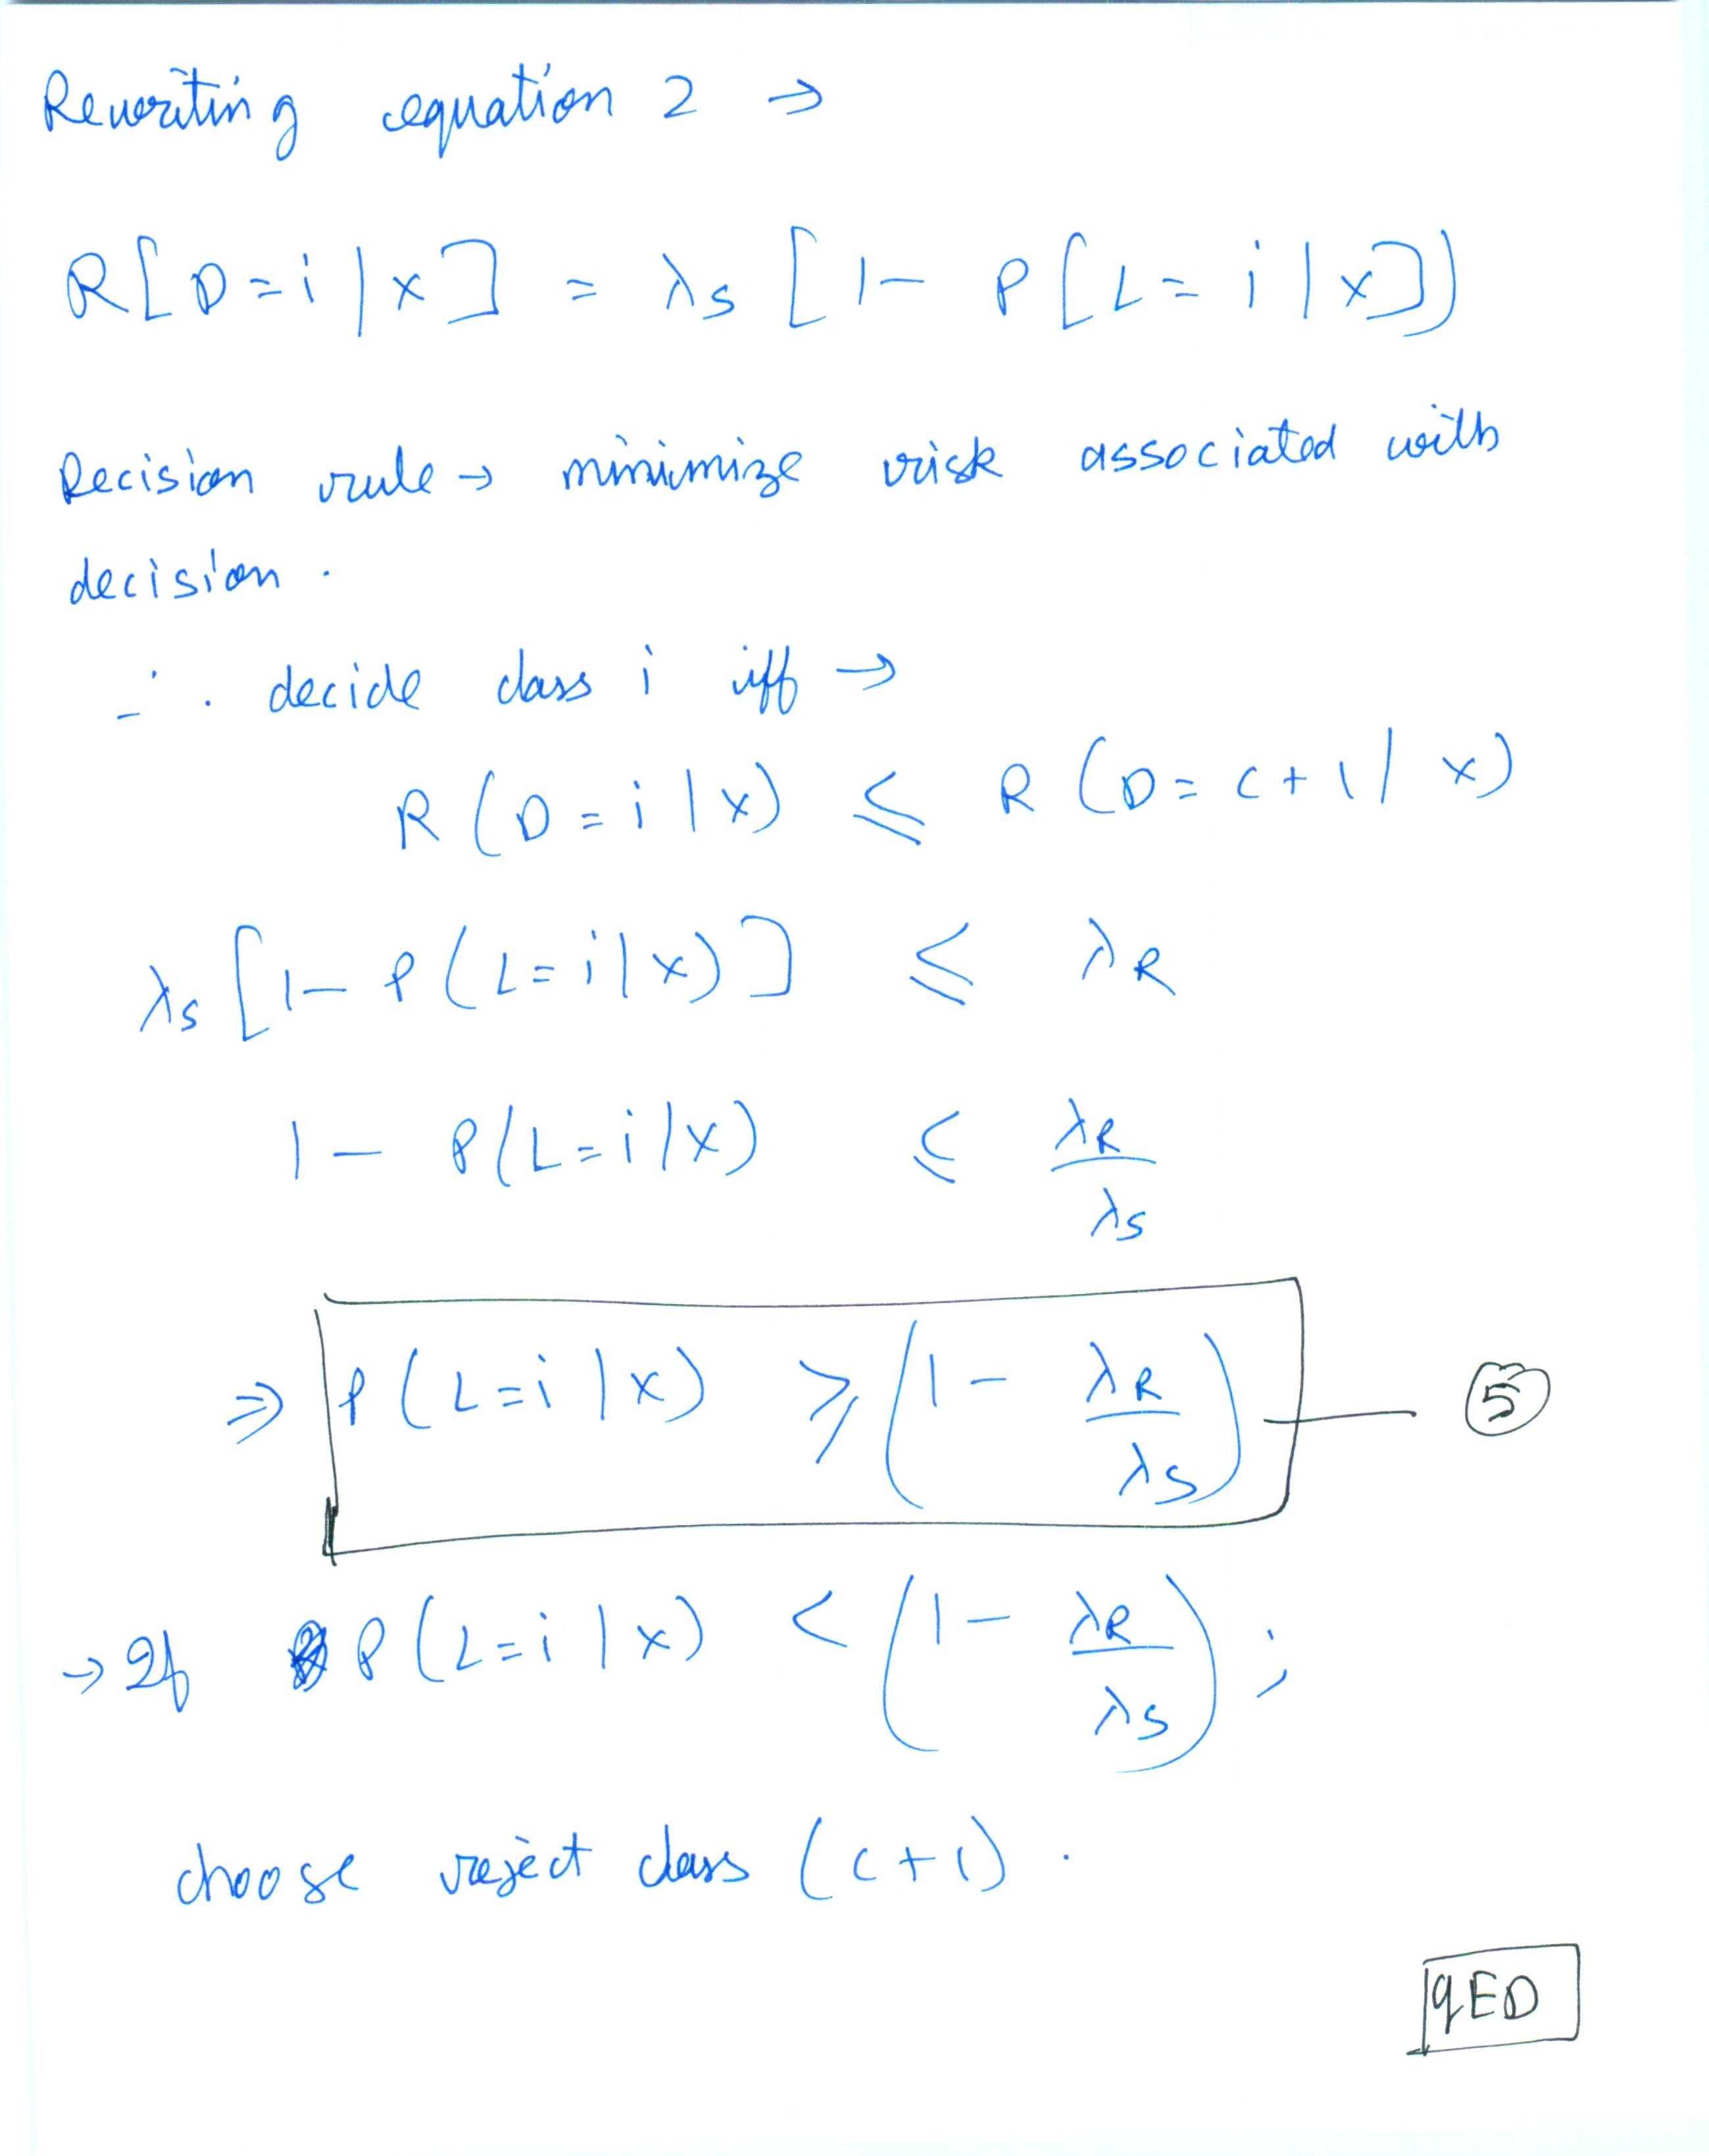 Rewriting equation 2 →
R[D=i|x] = λs [1- P[L=i|x])
Decision rule → minimize risk associated with
decision.
∴ decide class i iff →
R(D=i|x) ≤ R(D=c+1|x)
λs [1-P(L=i|x)] ≤ λR
1- P(L=i|x) ≤ λR/λs
⇒ P(L=i|x) ≥ (1- λR/λs) — ⑤
→ If P(L=i|x) < (1- λR/λs);
choose reject class (c+1).
QED